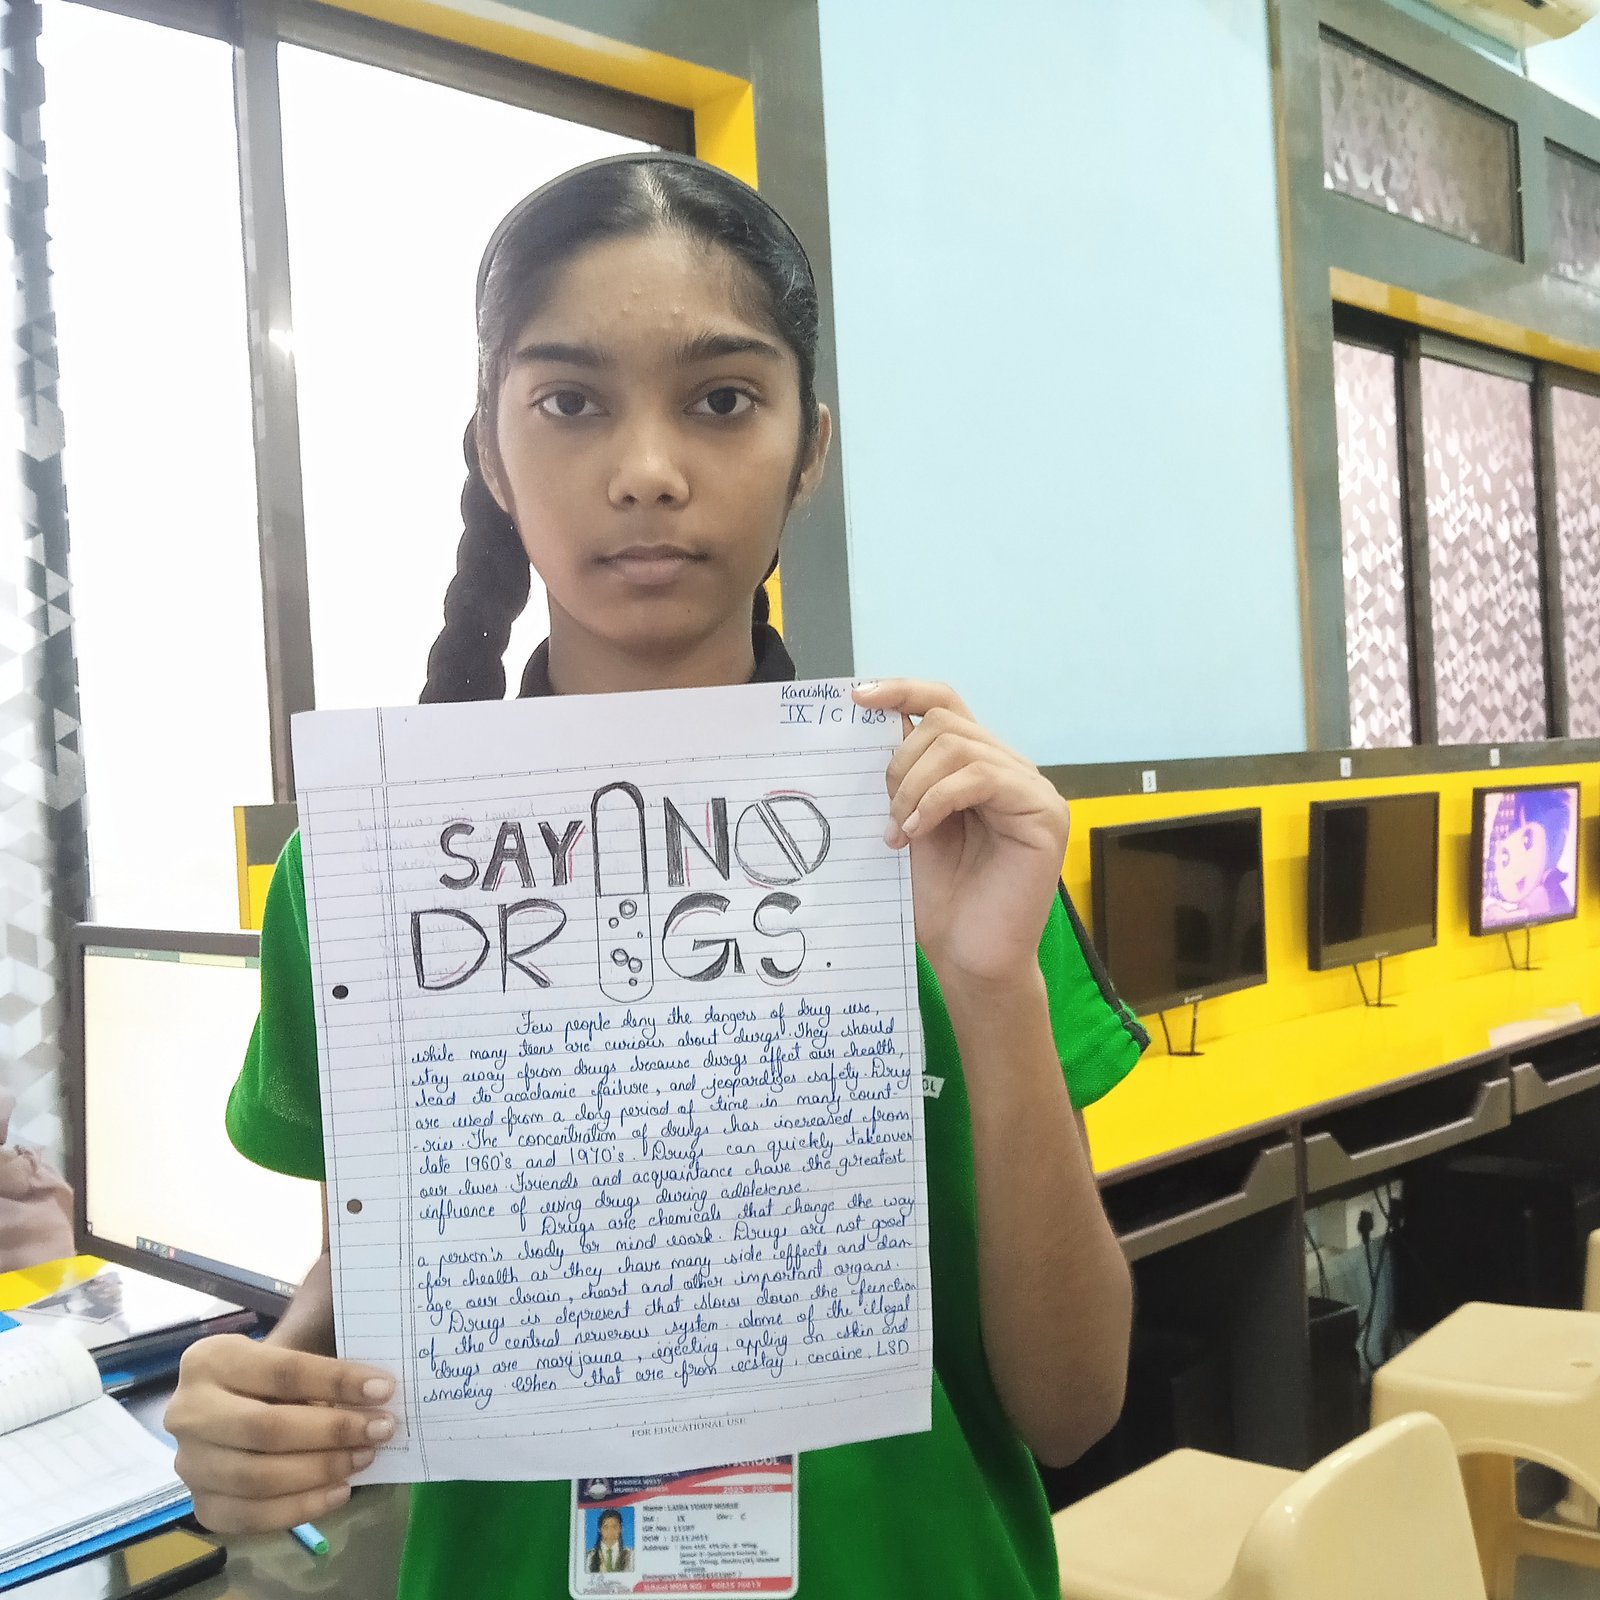 Kanishka.
IX / C / 23.
SAY NO
DRUGS.
Few people deny the dangers of drug use,
while many teens are curious about durgs. They should
stay away from drugs because durgs affect our health,
lead to acadamic failure, and jeopardizes safety. Drug
are used from a long period of time in many count-
-ries. The concentration of drugs has increased from
late 1960's and 1970's. Drugs can quickly takeover
our lives. Friends and acquaintance have the greatest
influence of using drugs during adolesense.
Drugs are chemicals that change the way
a person's body or mind work. Drugs are not good
for health as they have many side effects and dam-
-age our brain, heart and other important organs.
Drugs is depresent that slows down the function
of the central nerverous system. Some of the illegal
drugs are marijauna, injecting, appling on skin and
smoking. When that are from ecstay, cocaine, LSD
FOR EDUCATIONAL USE
SCHOOL
2025 - 2026
Name :
Std : IX Div : C
GR No.: 11187
Address :